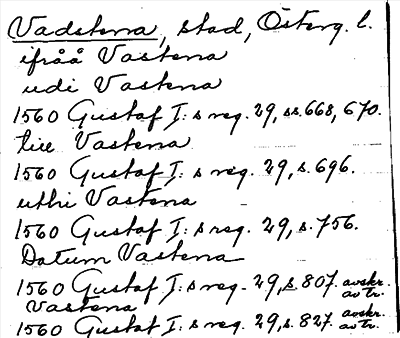 Vadstena, stad, Österg. l.
ifråå Vastena
udi Vastena
1560 Gustaf I:s reg. 29, ss. 668, 670.
till Vastena
1560 Gustaf I:s reg. 29, s. 696.
uthi Vastena
1560 Gustaf I:s reg. 29, s. 756.
Datum Vastena
1560 Gustaf I:s reg. 29, s. 807. avskr. av tr.
Vastena
1560 Gustaf I:s reg. 29, s. 827. avskr. av tr.